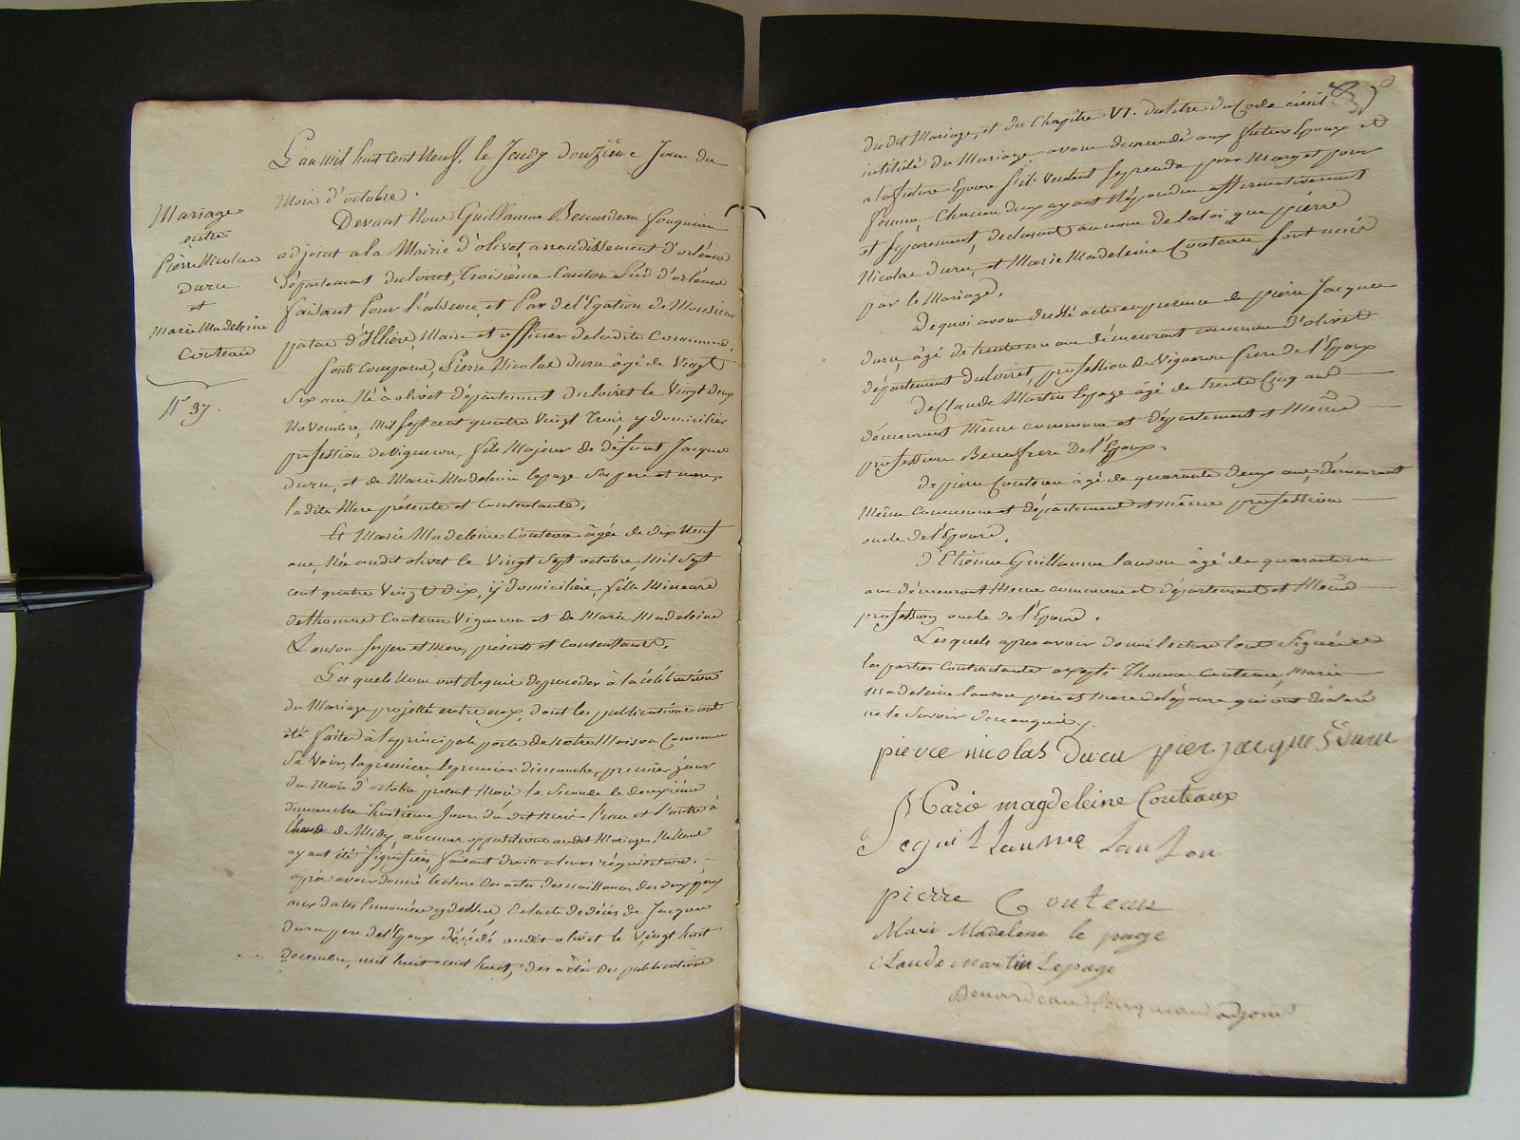 Mariage
entre
Pierre Nicolas
duru
et
Marie Madeleine
Couteau
N° 37.
L'an mil huit cent Neuf, le Jeudy douzième Jour du
Mois d'octobre.
Devant Nous Guillaume Benardeau fouqueau
adjoint a la Mairie d'olivet, arrondissement d'orléans
département du loiret, troisième Canton Sud d'orléans
faisant Pour l'absence et Par delégation de Monsieur
patas d'Illiers, Maire et officier de ladite Commune.
Sont comparus, Pierre Nicolas duru âgé de Vingt
Six ans Né à olivet département du loiret le Vingt deux
Novembre, Mil sept cent quatre Vingt trois, y domicilié
profession de Vigneron, fils Majeur de défunt Jacques
duru, et de Marie Madeleine lepage Ses pere et mere,
ladite Mere présente et Consentante.
Et Marie Madeleine Couteau âgée de dix Neuf
ans, Née audit olivet le Vingt Sept octobre, Mil Sept
cent quatre Vingt dix, y domiciliée, fille Mineure
de thomas Couteau Vigneron et de Marie Madeleine
Lanson ses pere et mere, présents et Consentants.
Lesquels Nous ont Requis de proceder à la célébration
du Mariage projetté entre eux, dont les publications ont
été faites à la principale porte de notre Maison Commune
Savoir, la premiere le premier dimanche, premier jour
du Mois d'octobre present Mois la Seconde le deuxième
dimanche huitième Jour du dit mois l'une et l'autre à
l'heure de Midy, aucune opposition audit Mariage Ne Nous
ayant été Signifiée, faisant droit a leur réquisitoire.
après avoir donné lecture des actes de naissances des deux époux
aux dates énoncées cy dessus, de l'acte de décès de Jacques
duru pere de l'Epoux décédé audit olivet le Vingt huit
decembre, mil huit cent huit, des actes des publications
du dit Mariage, et du Chapitre VI. du titre du Code civil
intitulé du Mariage avons demandé aux futurs Epoux et
a la future Epouse s'ils veulent se prendre pour Mary et pour
femme, Chacun d'eux ayant Répondu affirmativement
et séparement, declarons au nom de la loi que pierre
Nicolas duru, et Marie Madeleine Couteau sont unis
par le Mariage.
De quoi avons dressé acte en presence de pierre Jacques
duru, âgé de trente un ans demeurant commune d'olivet
département du loiret, profession de Vigneron frere de l'Epoux
De Claude Martin lepage âgé de trente Cinq ans
demeurant Même commune et département et Même
profession Beaufrere de l'Epoux.
de pierre Couteau âgé de quarante deux ans, demeurant
Même commune et département et même profession
oncle de l'Epouse.
d'Etienne Guillaume lanson âgé de quarante un
ans demeurant Même commune et département et Même
profession oncle de l'Epouse.
Lesquels apres avoir donné lecture l'ont Signé et
les parties Contractantes excepté Thomas Couteau, Marie
Madeleine lanson pere et mere de l'épouse qui ont déclaré
ne le Savoir de ce enquis.
pierre nicolas Duru pier jacques Duru
Marie magdeleine Couteaux
guillaume lanson
pierre Couteau
Marie Madelene le page
claude martin Lepage
Benardeau fouqueau adjoint